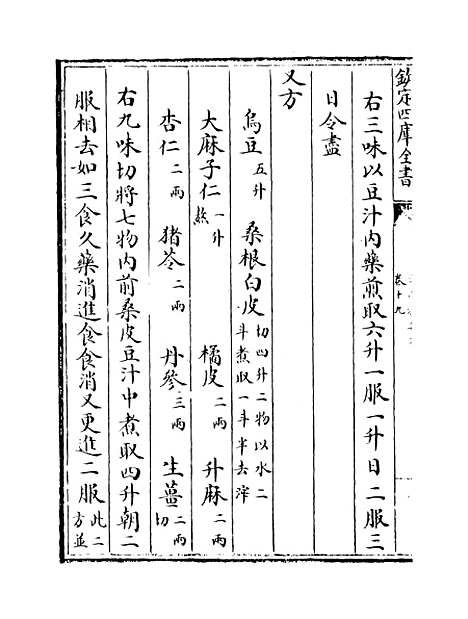 欽定四庫全書
卷十九
右三味以豆汁內藥煎取六升一服一升日二服三
日令盡
又方
烏豆五升 桑根白皮切四升二物以水二斗煮取一斗半去滓
大麻子仁一升熬 橘皮二兩 升麻二兩
杏仁二兩 猪苓二兩 丹參三兩 生薑二兩切
右九味切將七物內前桑皮豆汁中煮取四升朝二
服相去如三食久藥消進食食消又更進二服此二方並